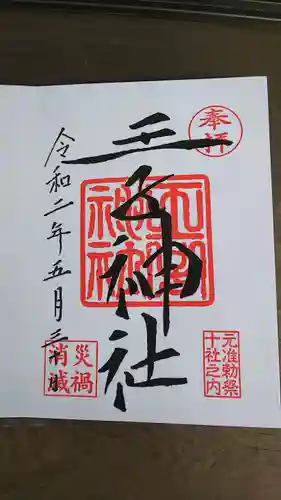 奉拝
王子神社
王子神社
令和二年五月三十日
災禍
消滅
元准勅祭
十社之内